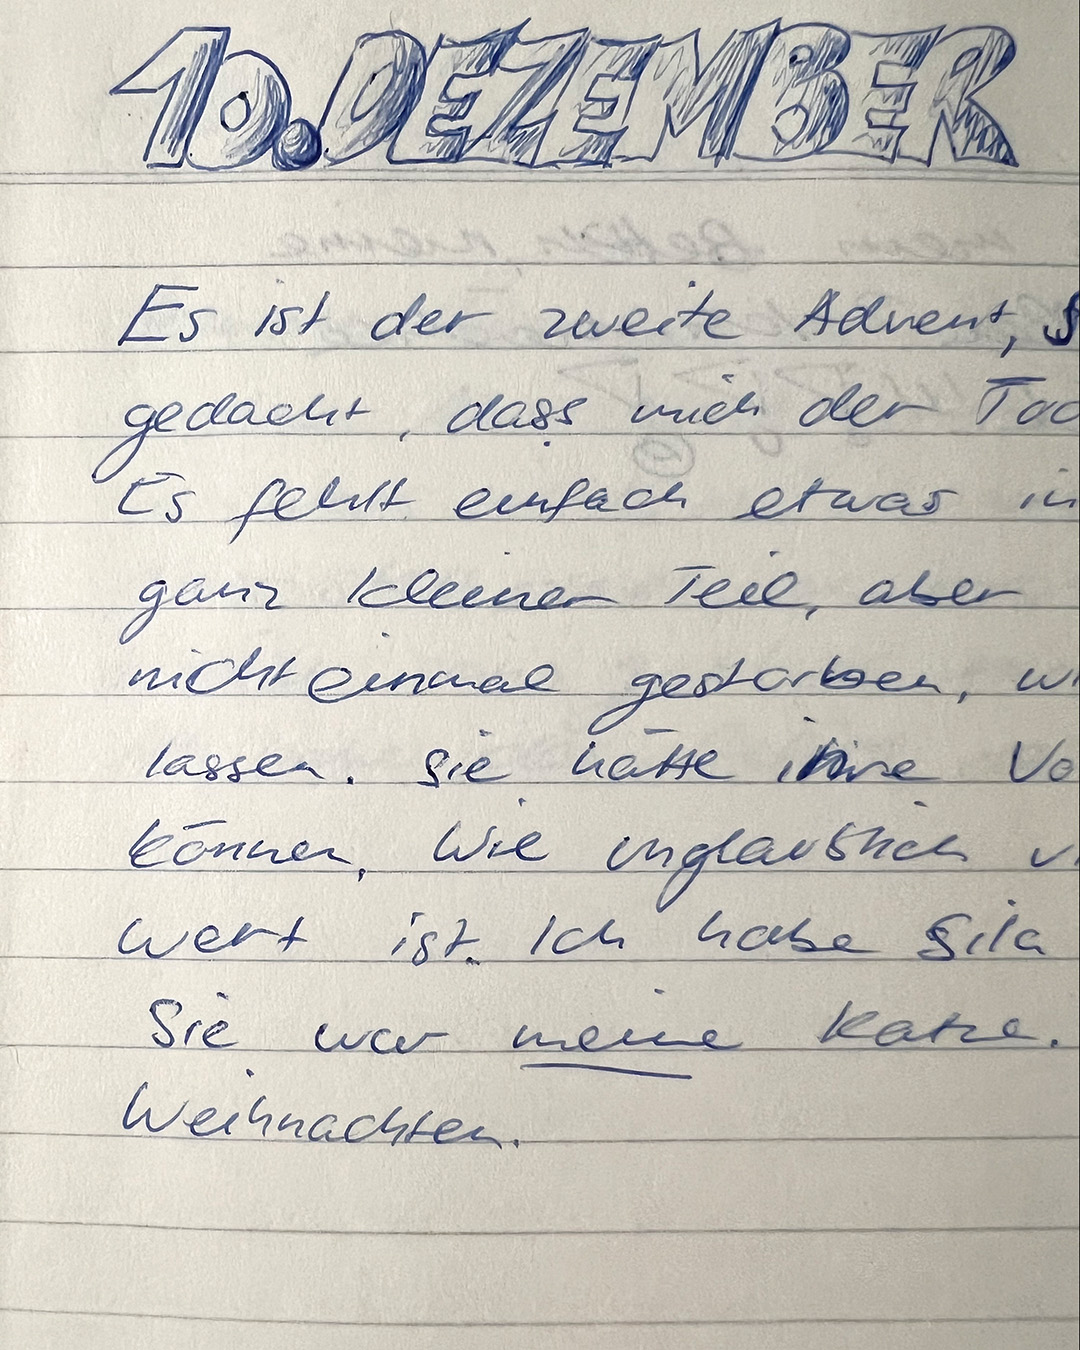 10. DEZEMBER
Es ist der zweite Advent,
gedacht, dass mich der
Es fehlt einfach etwas in
ganz kleiner Teil, aber
nicht einmal gestorben,
lassen. Sie hätte ihre
können, Wie unglaublich
wert ist. Ich habe Sila
Sie war meine Katze.
Weihnachten.